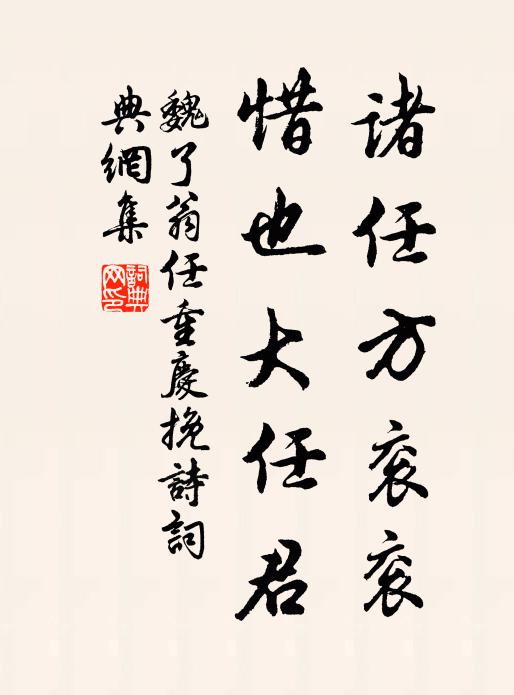 諸任方衮衮
惜也大任君
魏了翁任重慶挽詩詞
典網集
詞典
网印